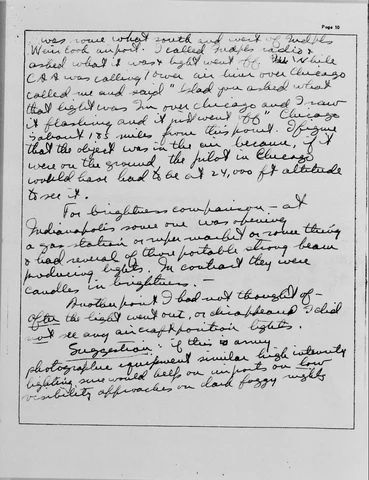 Page 10
was some what south and west of Indpls
Weir Cook airport. I called Indpls radio &
asked what it was & light went off. While
C.A.A was calling Tower air liner over Chicago
called me and said "I Had you asked what
that light was I'm over Chicago and I saw
it flashing and it just went off" Chicago
is about 175 miles from this point. I figure
that the object was in the air because, if it
were on the ground, the pilot in Chicago
would have had to be at 24,000 ft altitude
to see it.
For brightness comparison - at
Indianapolis some one was opening
a gas station or super market or some thing
& had several of those portable strong beam
producing lights. In contrast they were
candles in brightness. -
Another point I had not thought of -
after the light went out, or disappeared I did
not see any aircraft position lights.
Suggestion: if this is army
photographic equipment similar high intensity
lighting sure would help on airports on low
visibility approaches on dark foggy nights